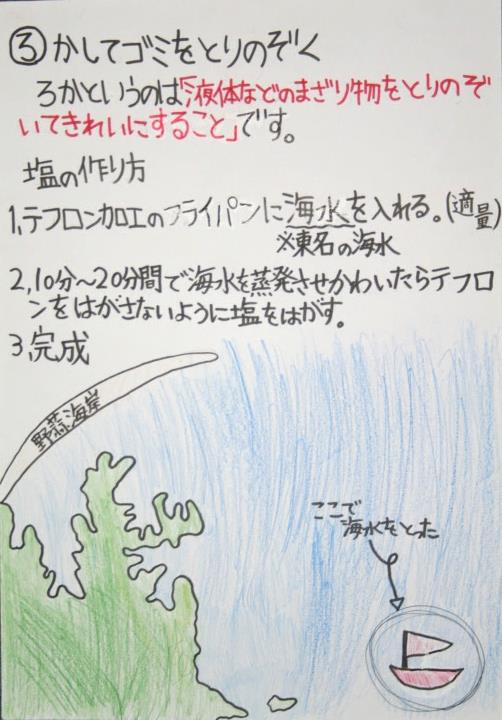 ③ かしてゴミをとりのぞく
ろかというのは「液体などのまざり物をとりのぞ
いてきれいにすること」です。
塩の作り方
1,テフロン加工のフライパンに海水を入れる。(適量)
※東名の海水
2,10分～20分間で海水を蒸発させかわいたらテフロ
ンをはがさないように塩をはがす。
3,完成
野蒜海岸
ここで
海水をとった